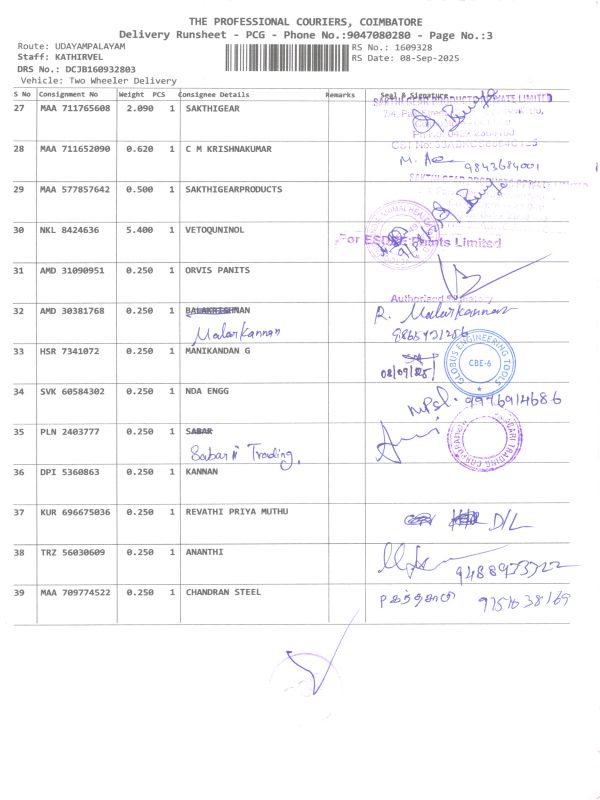 THE PROFESSIONAL COURIERS, COIMBATORE
Delivery Runsheet - PCG - Phone No.:9047080280 - Page No.:3
Route: UDAYAMPALAYAM
RS No.: 1609328
Staff: KATHIRVEL
RS Date: 08-Sep-2025
DRS No.: DCJB160932803
Vehicle: Two Wheeler Delivery
S No Consignment No Weight PCS Consignee Details Remarks Seal & Signature
27 MAA 711765608 2.090 1 SAKTHIGEAR
28 MAA 711652090 0.620 1 C M KRISHNAKUMAR 9843684001
29 MAA 577857642 0.500 1 SAKTHIGEARPRODUCTS
30 NKL 8424636 5.400 1 VETOQUNINOL
Limited
31 AMD 31090951 0.250 1 ORVIS PANITS
Authorised
32 AMD 30381768 0.250 1 BALAKRISHNAN R. Malarkannan
Malarkannan
33 HSR 7341072 0.250 1 MANIKANDAN G 08/09/25
GLOBUS ENGINEERING TOOLS CBE-6
34 SVK 60584302 0.250 1 NDA ENGG 9976914686
35 PLN 2403777 0.250 1 SABAR
Sabari Trading,
TRADING CORPORATION
36 DPI 5360863 0.250 1 KANNAN
37 KUR 696675036 0.250 1 REVATHI PRIYA MUTHU D/L
38 TRZ 56030609 0.250 1 ANANTHI
39 MAA 709774522 0.250 1 CHANDRAN STEEL